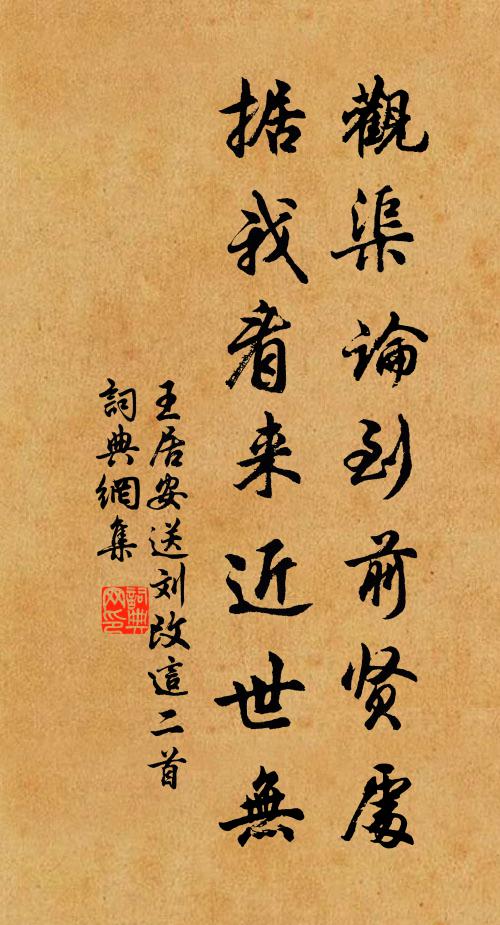 觀渠論到前贤處
据我看来近世無
王居安送刘改這二首
詞典網集
詞典
网印